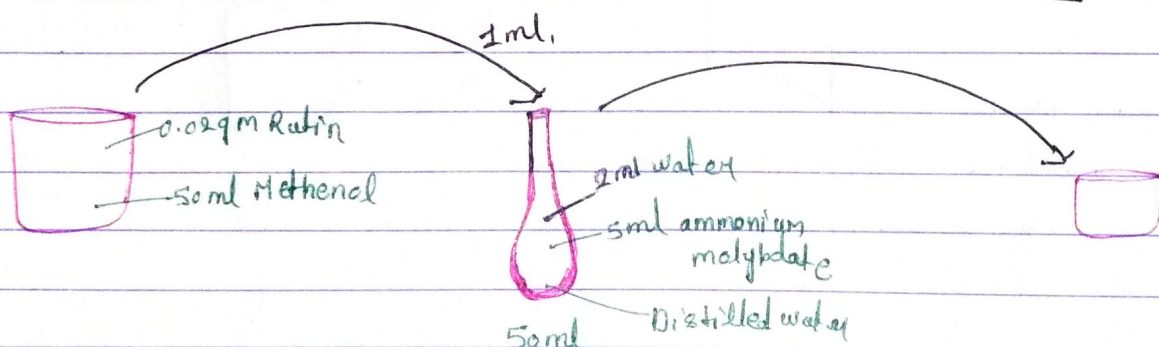 1ml.
0.02gm Rutin
50ml Methenol
2ml water
5ml ammonium
molybdate
Distilled water
50ml